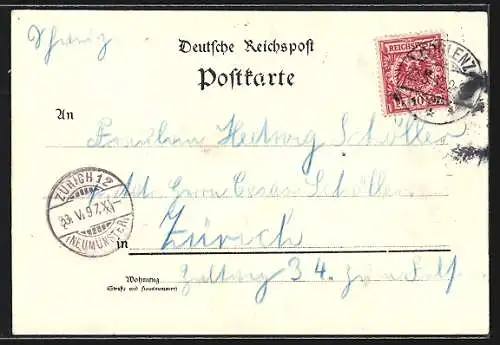 Schweiz
Deutsche Reichspost
Postkarte
REICHSPOST
10
An
Fräulein Hedwig Schöller
Herrn Cesar Schöller
ZÜRICH 12
23. V. 97. XI
(NEUMÜNSTER)
in Zürich
34.
Wohnung
(Straße und Hausnummer)